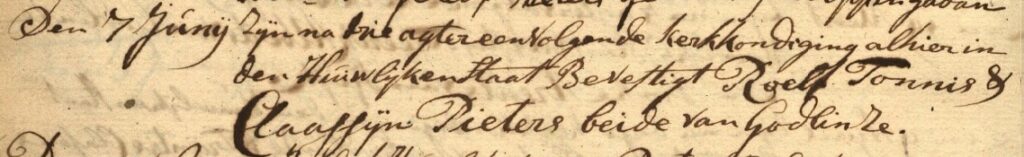 Den 7 Junij zijn na drie agtereenvolgende kerkkondiging alhier in
den Huuwlijken Staat Bevestigt Roelf Tonnis &
Claassijn Pieters beide van Godlinze.